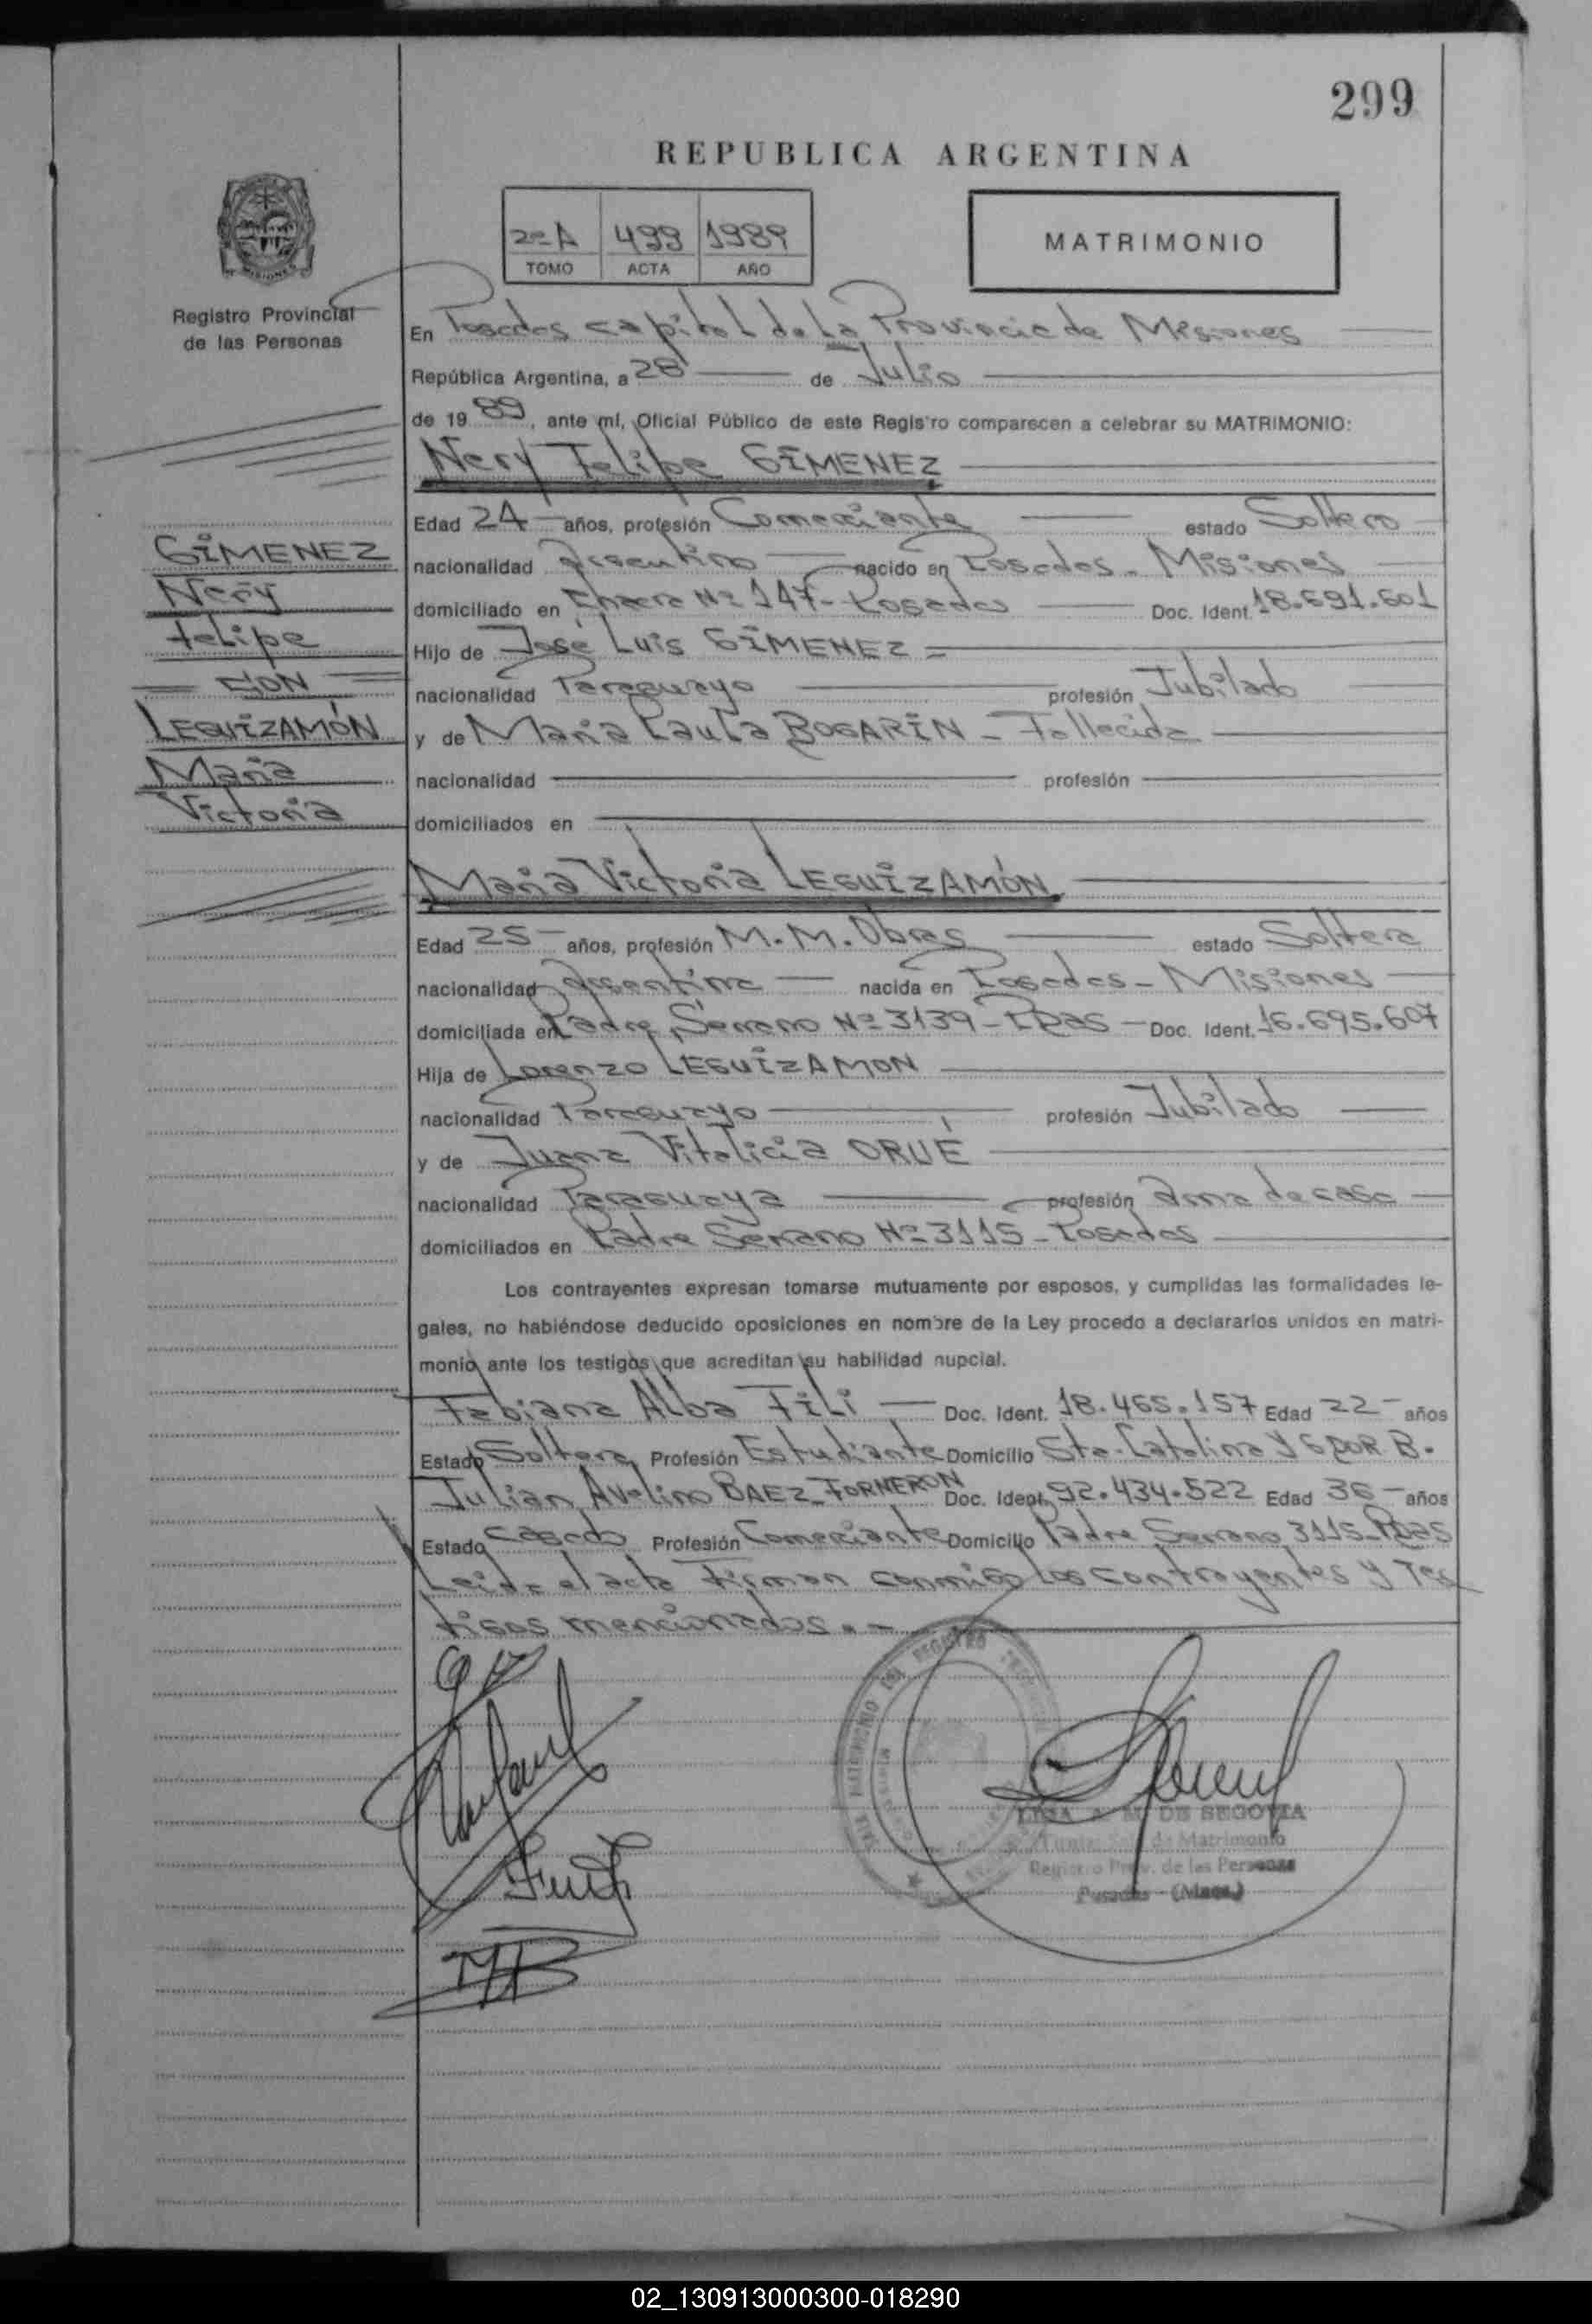 299
REPUBLICA ARGENTINA
2º A 499 1989
TOMO ACTA AÑO
MATRIMONIO
MISIONES
Registro Provincial
de las Personas
En Posadas capital de la Provincia de Misiones
República Argentina, a 28 de Julio
de 1989, ante mí, Oficial Público de este Registro comparecen a celebrar su MATRIMONIO:
Nery Felipe GIMENEZ
Edad 24 años, profesión Comerciante estado Soltero
nacionalidad Argentino nacido en Posadas - Misiones
domiciliado en Chacra Nº 147 - Posadas Doc. Ident. 18.691.601
Hijo de José Luis GIMENEZ =
nacionalidad Paraguayo profesión Jubilado
y de Maria Paula BOGARIN - Fallecida
nacionalidad profesión
domiciliados en
GIMENEZ
Nery
Felipe
= CON =
LEGUIZAMÓN
Maria
Victoria
Maria Victoria LEGUIZAMÓN
Edad 25 años, profesión M.M. Obras estado Soltera
nacionalidad Argentina nacida en Posadas - Misiones
domiciliada en Padre Serrano Nº 3139 - Pdas - Doc. Ident. 16.695.607
Hija de Lorenzo LEGUIZAMON
nacionalidad Paraguayo profesión Jubilado
y de Juana Vitalicia ORUÉ
nacionalidad Paraguaya profesión Ama de casa
domiciliados en Padre Serrano Nº 3115 - Posadas
Los contrayentes expresan tomarse mutuamente por esposos, y cumplidas las formalidades le-
gales, no habiéndose deducido oposiciones en nombre de la Ley procedo a declararlos unidos en matri-
monio ante los testigos que acreditan su habilidad nupcial.
Fabiana Alba Fili Doc. Ident. 18.465.157 Edad 22 años
Estado Soltera Profesión Estudiante Domicilio Sta. Catalina y G por B.
Julian Avelino BAEZ FORNERON Doc. Ident. 92.434.522 Edad 36 años
Estado Casado Profesión Comerciante Domicilio Padre Serrano 3115 Pdas
Leida el acta Firman conmigo los contrayentes y Tes
tigos mencionados. -
DE SEGOVIA
de Matrimonio
Registro Prov. de las Personas
Posadas - (Mnes.)
02_130913000300-018290